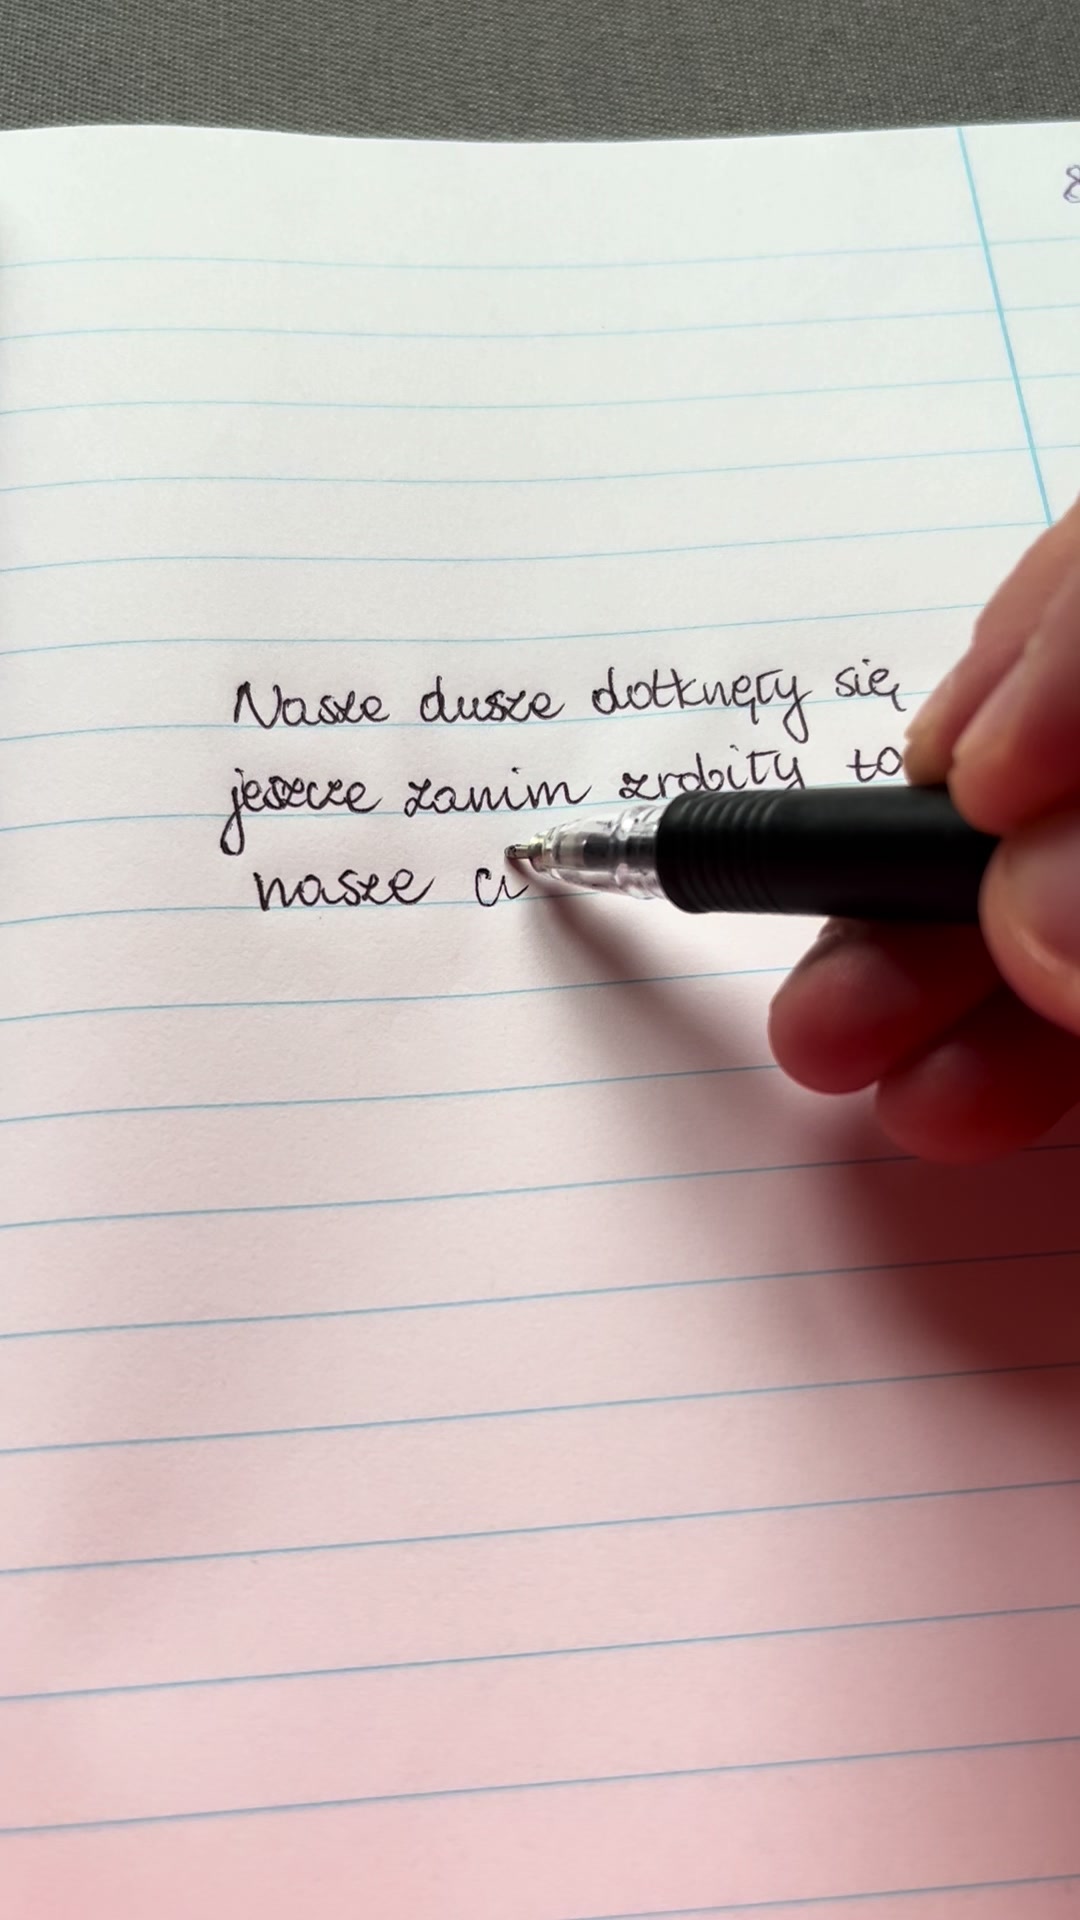 8
Nasze dusze dotknęły się
jeszcze zanim zrobiły to
nasze ci